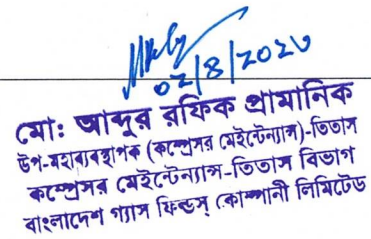 02/8/2023
মো: আব্দুর রফিক প্রামানিক
উপ-মহাব্যবস্থাপক (কম্প্রেসর মেইন্টেন্যান্স)-তিতাস
কম্প্রেসর মেইন্টেন্যান্স-তিতাস বিভাগ
বাংলাদেশ গ্যাস ফিল্ডস্ কোম্পানী লিমিটেড